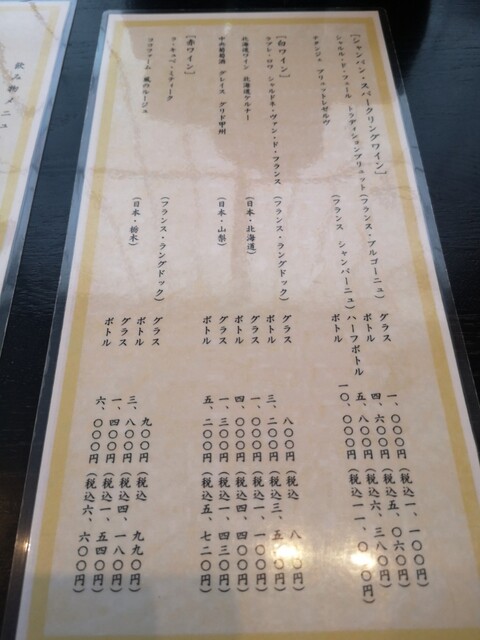 [シャンパン・スパークリングワイン]
シャルル・ド・フェール　トラディションブリュット(フランス・ブルゴーニュ) グラス 一、〇〇〇円(税込一、一〇〇円)
ボトル 四、六〇〇円(税込五、〇六〇円)
テタンジェ　ブリュットレゼルヴ (フランス　シャンパーニュ) ハーフボトル 五、八〇〇円(税込六、三八〇円)
ボトル 一〇、〇〇〇円(税込一一、〇〇〇円)
[白ワイン]
ラブレ・ロワ　シャルドネ・ヴァン・ド・フランス (フランス・ラングドック) グラス 八〇〇円(税込　八
ボトル 三、二〇〇円(税込三、五
北海道ワイン　北海道ケルナー (日本・北海道) グラス 一、〇〇〇円(税込一、一〇〇円)
ボトル 四、〇〇〇円(税込四、四〇〇円)
中央葡萄酒　グレイス　グリド甲州 (日本・山梨) グラス 一、三〇〇円(税込一、四三〇円)
ボトル 五、二〇〇円(税込五、七二〇円)
[赤ワイン]
ラ・キュベ・ミティーク (フランス・ラングドック) グラス 九〇〇円(税込　九九〇円)
ボトル 三、八〇〇円(税込四、一八〇円)
ココファーム　風のルージュ (日本・栃木) グラス 一、四〇〇円(税込一、五四〇円)
ボトル 六、〇〇〇円(税込六、六〇〇円)
飲み物メニュ